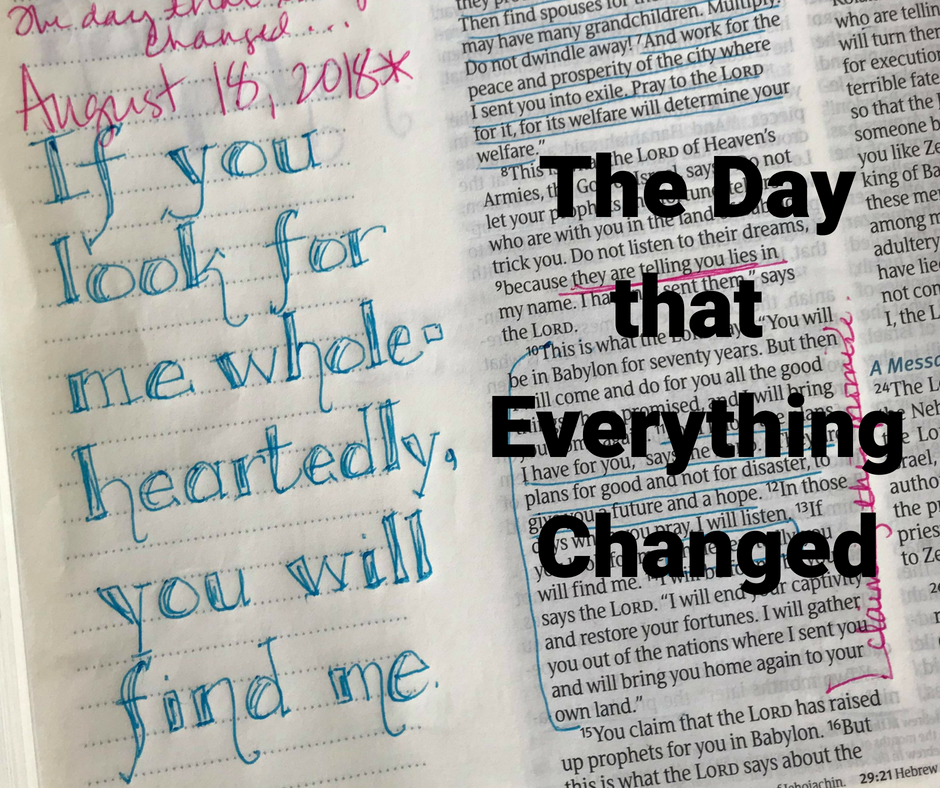 the day that
changed...
August 18, 2018*
If you
look for
me whole=
heartedly,
you will
find me.
The Day
that
Everything
Changed
Then find spouses for
may have many grandchildren. Multiply!
Do not dwindle away! 7And work for the
peace and prosperity of the city where
I sent you into exile. Pray to the LORD
for it, for its welfare will determine your
welfare."
8This the LORD of Heaven's
Armies, says not
let your prophets
who are with you in the land
trick you. Do not listen to their dreams,
9because they are telling you lies in
my name. I sent them," says
the LORD.
10This is what the "You will
be in Babylon for seventy years. But then
will come and do for you all the good
promised, and will bring
I have for you," says the
plans for good and not for disaster, to
a future and a hope. 12In those
pray, I will listen. 13If
will find me.
says the LORD. "I will end your captivity
and restore your fortunes. I will gather
you out of the nations where I sent you
and will bring you home again to your
own land."
15You claim that the LORD has raised
up prophets for you in Babylon. 16But
this is what the LORD says about the
claim this promise.
who are tellin
will turn them
for execution
terrible fate
so that the
someone b
you like Ze
king of Ba
these me
among m
adultery
have lie
not con
I, the L
A Messa
24The L
Neh
Lo
rael,
autho
the p
pries
to Ze
29:21 Hebrew